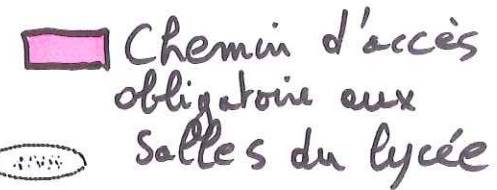 Chemin d'accès
obligatoire aux
Salles du lycée